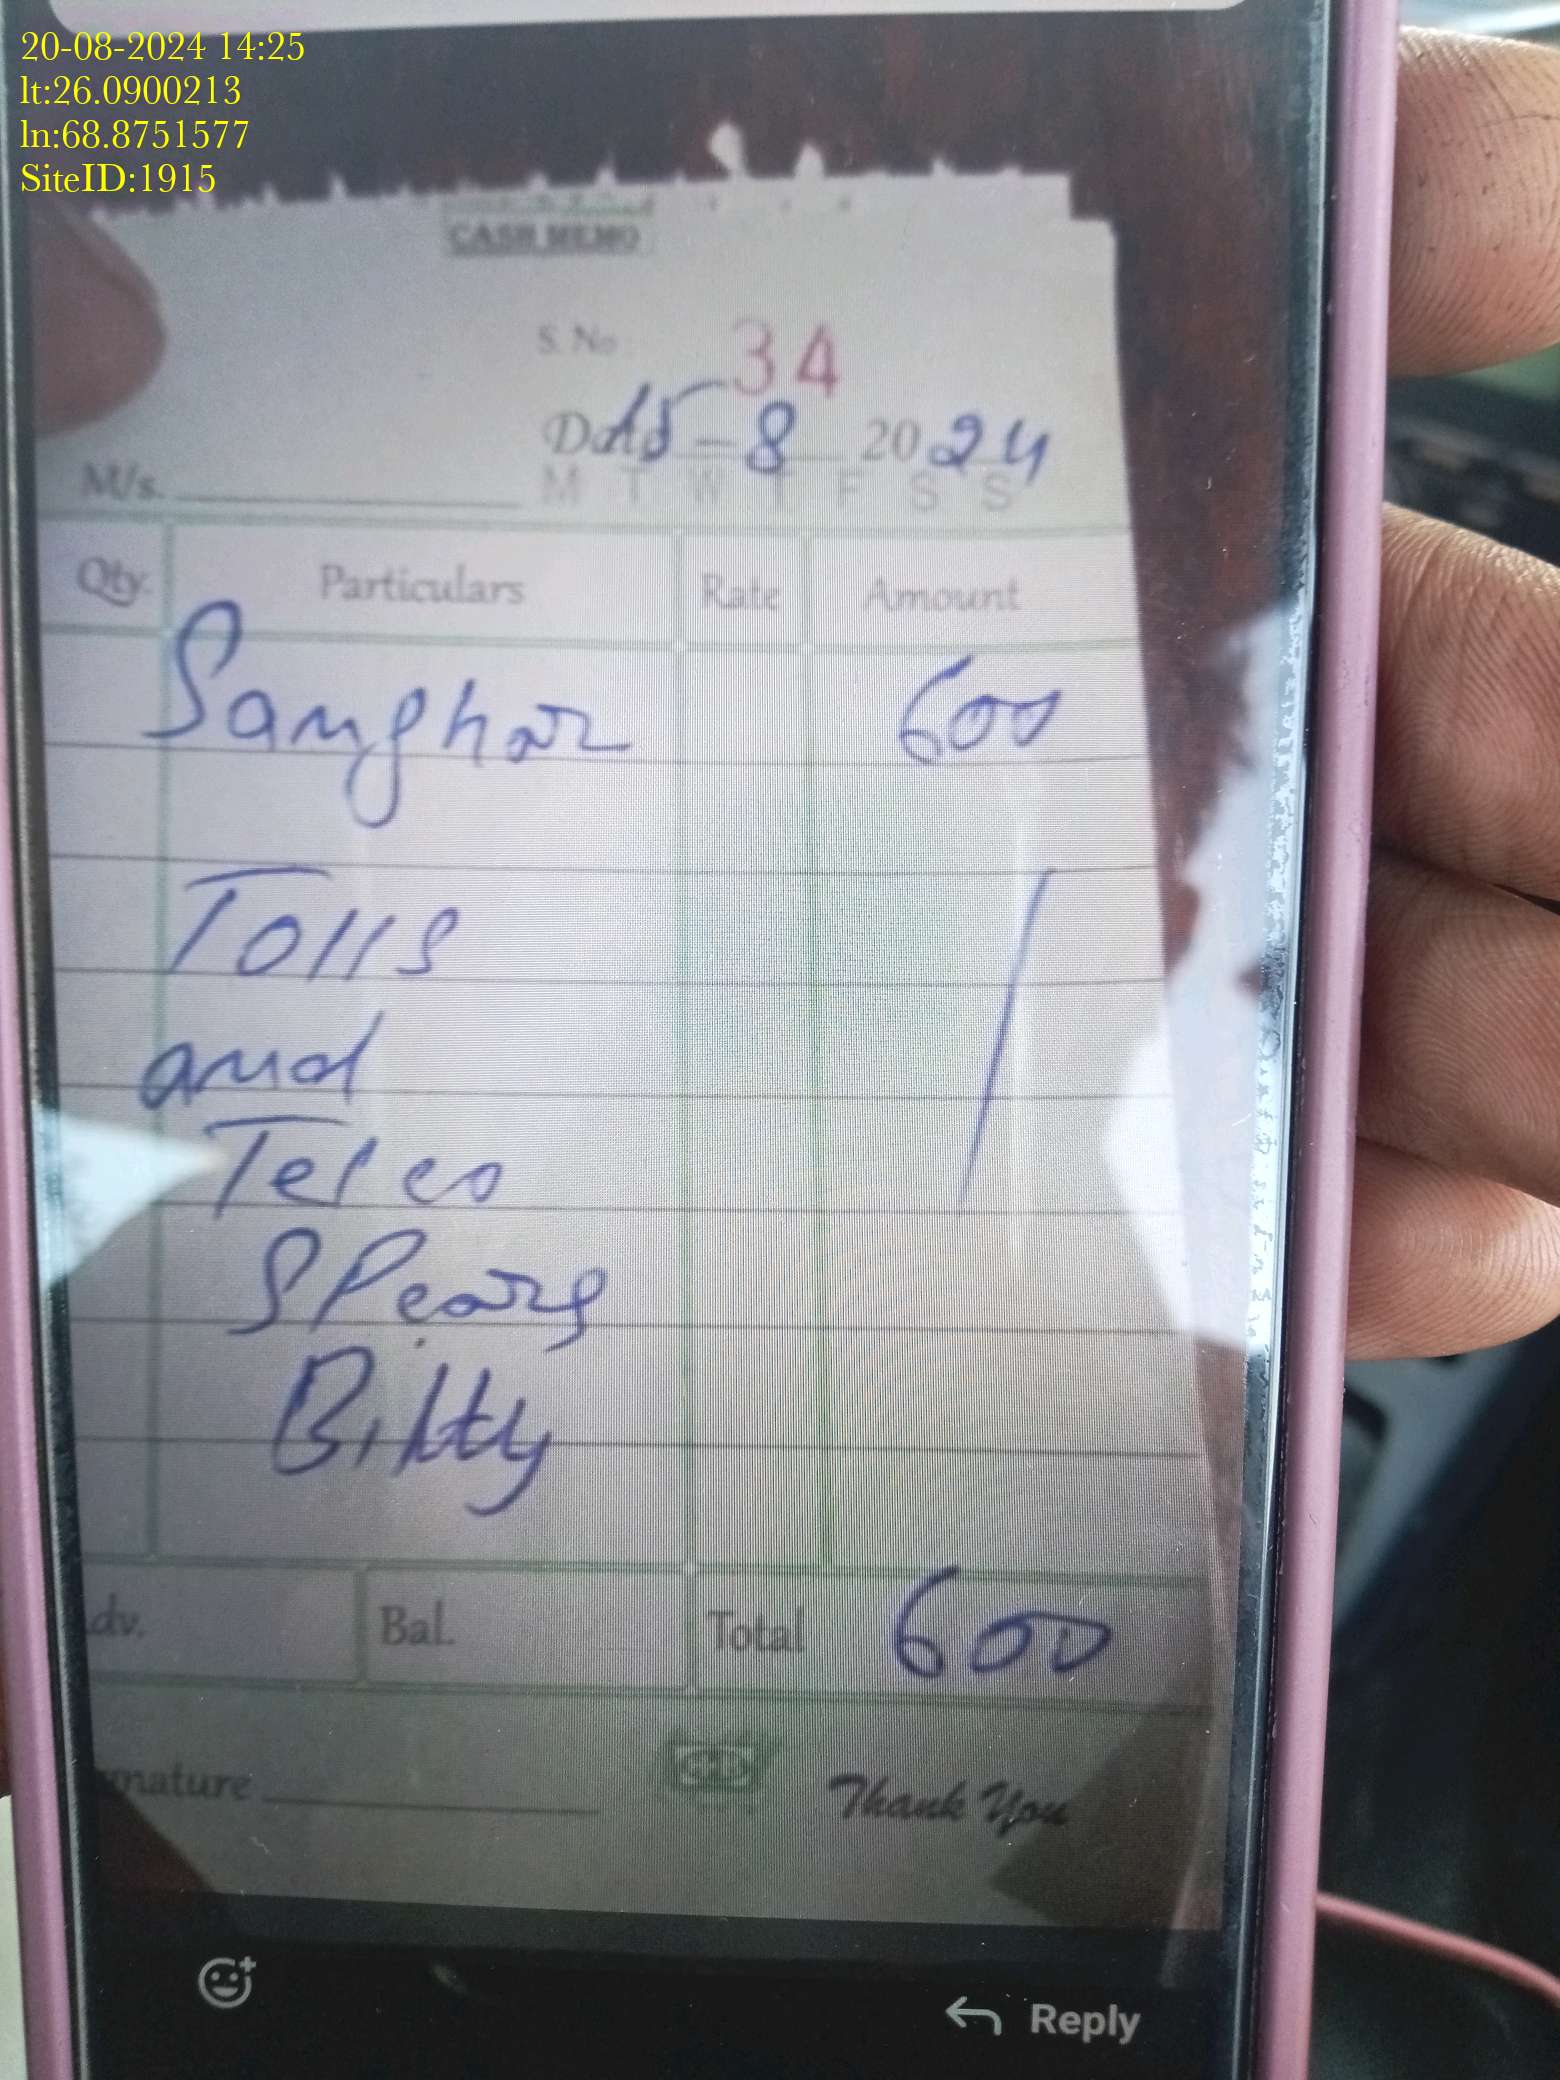 20-08-2024 14:25
lt:26.0900213
ln:68.8751577
SiteID:1915
CASH MEMO
S. No 34
Date 15-8 2024
M/s. M T W T F S S
Qty. Particulars Rate Amount
Sanghar 600
Tolls
and
Telco
SPears
Biltty
dv. Bal. Total 600
nature
Thank You
Reply